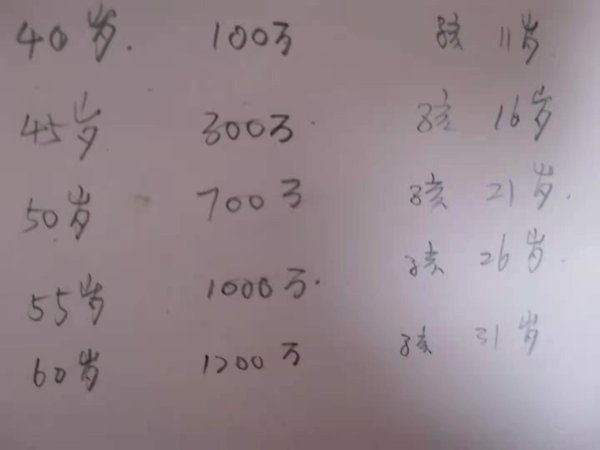 40岁. 100万 孩 11岁
45岁 300万 孩 16岁
50岁 700万 孩 21岁.
55岁 1000万. 孩 26岁.
60岁 1200万 孩 31岁